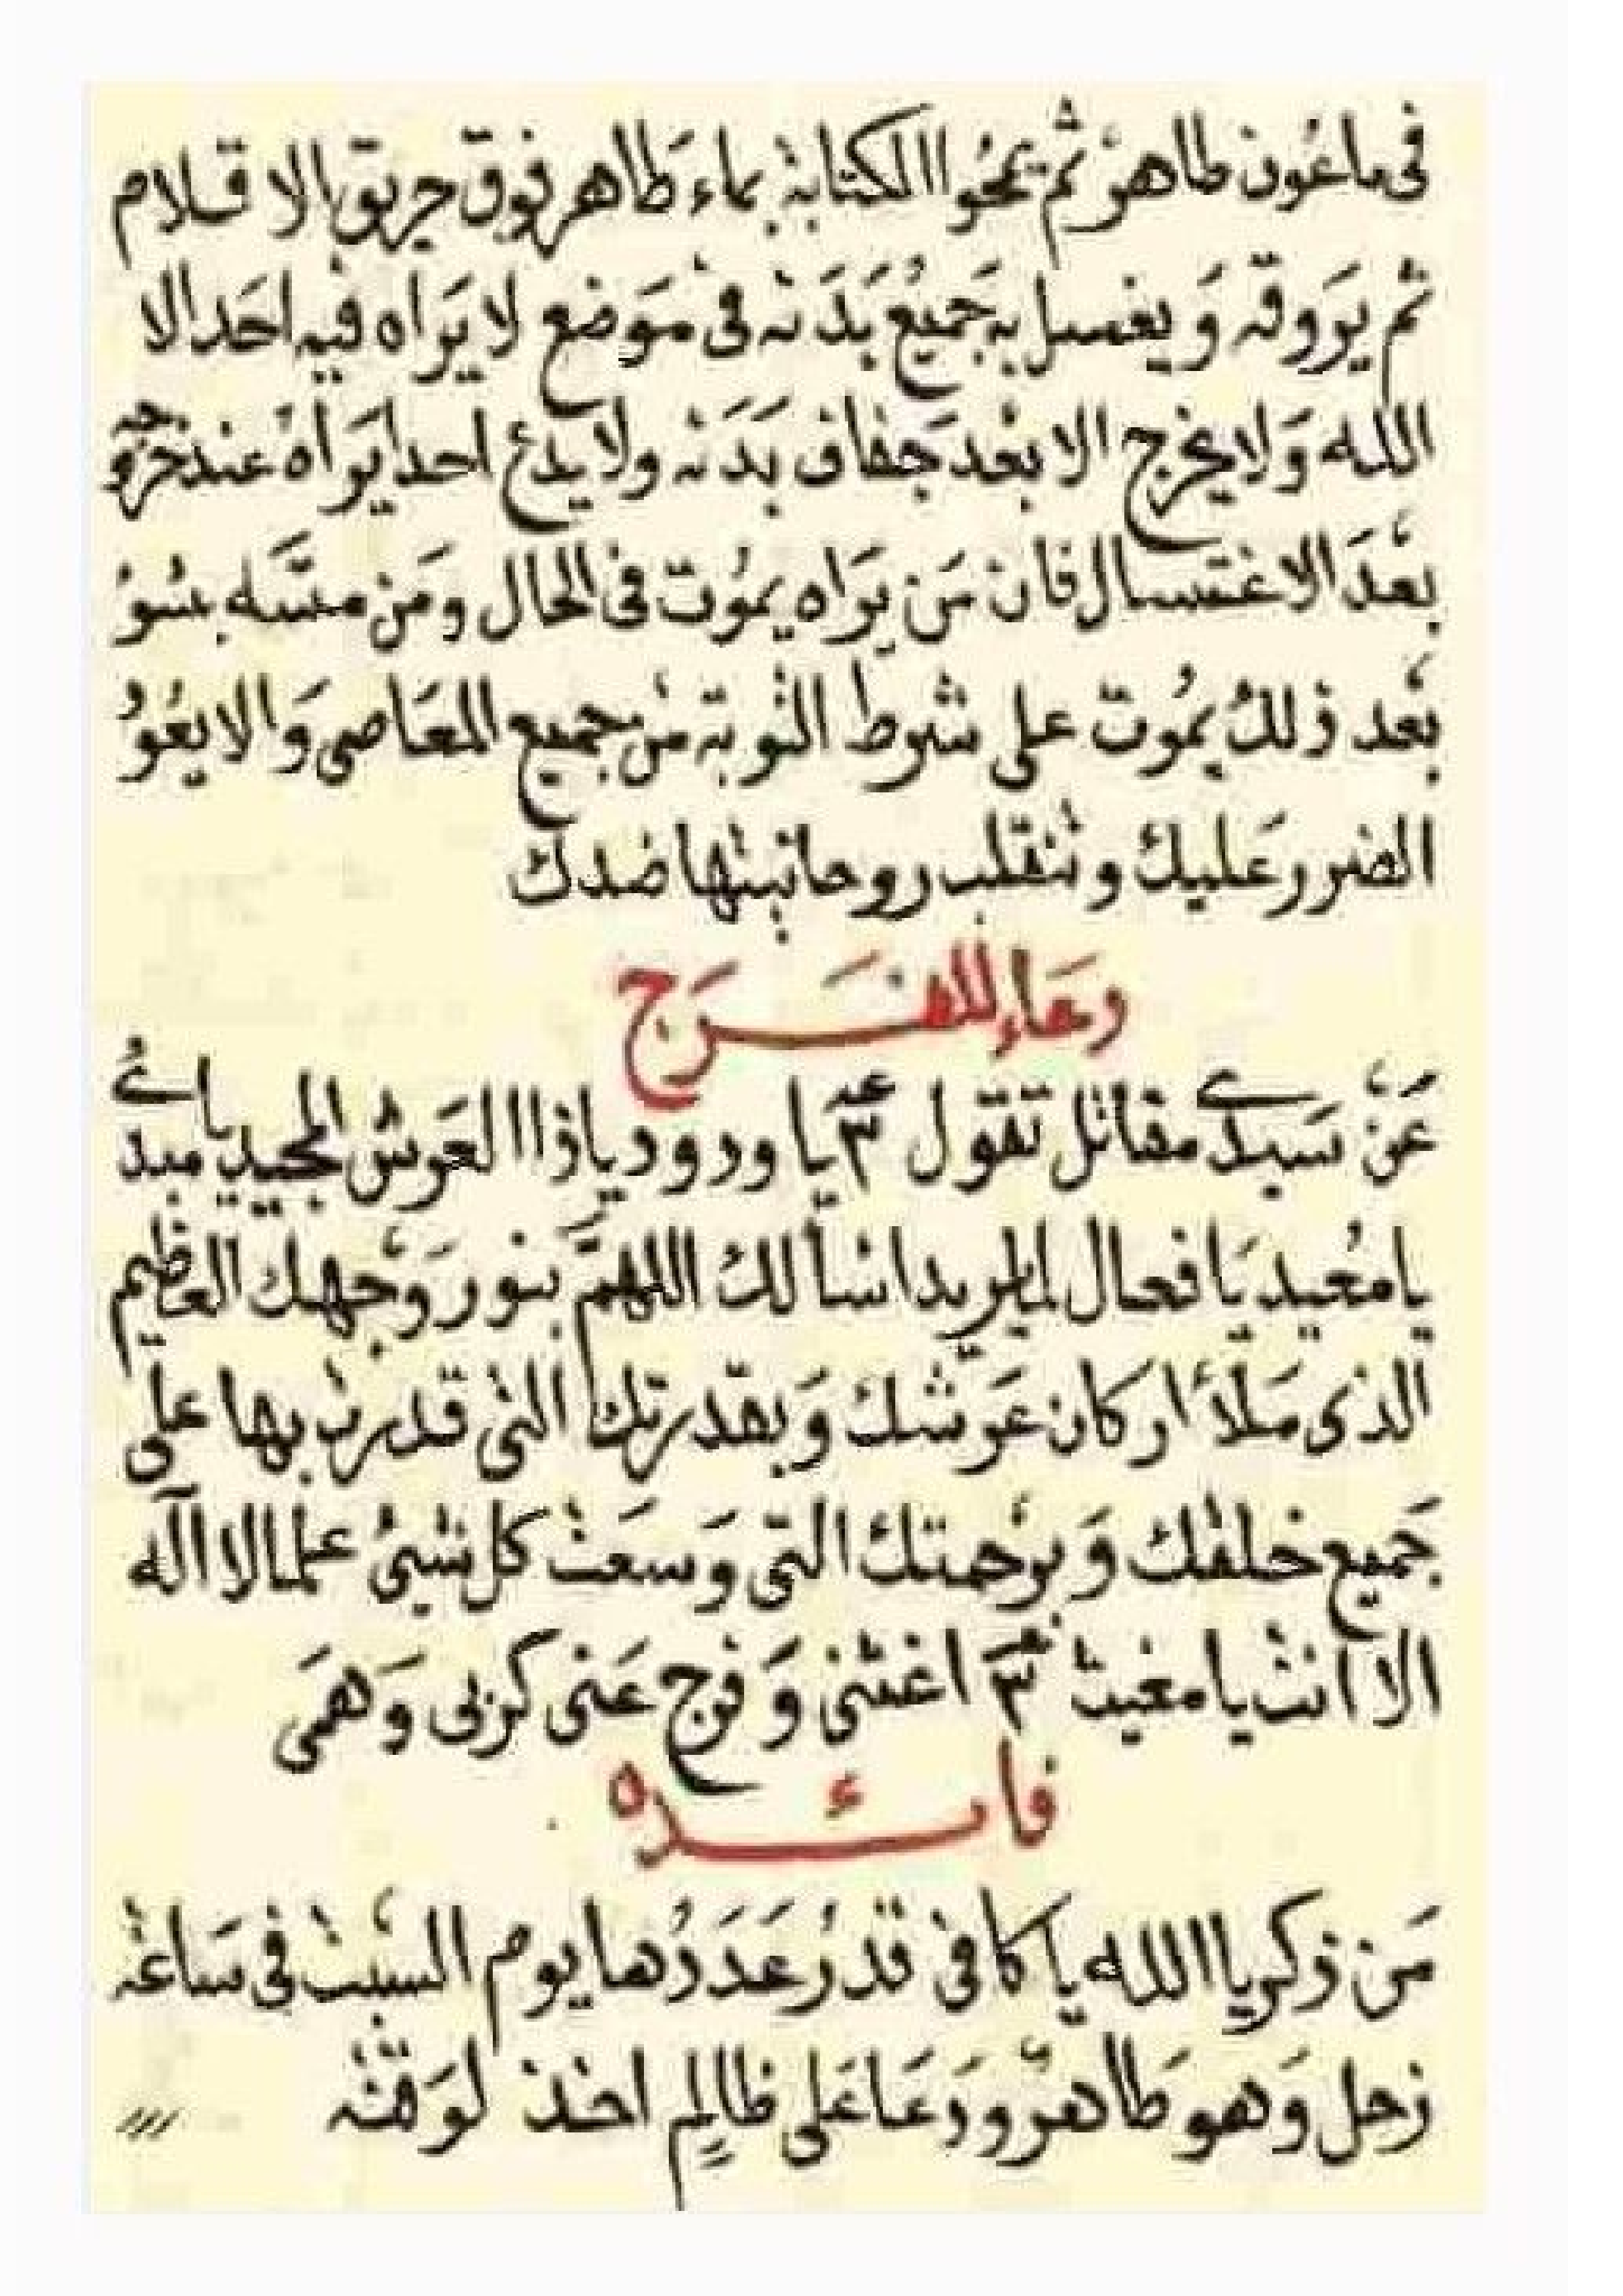 فى ماعون طاهر ثم يمحوا الكتابة بماء طاهر فوق حريق الاقلام
ثم يروقه ويغسل به جميع بدنه فى موضع لا يراه فيه احد الا
الله ولا يخرج الا بعد جفاف بدنه ولا يدع احدا يراه عند خروجه
بعد الاغتسال فان من يراه يموت فى الحال ومن مسه بسوء
بعد ذلك يموت على شرط التوبة من جميع المعاصى والا يعود
الضرر عليك وتنقلب روحانيتها ضدك
دعاء للفرج
عن سيدى مقاتل تقول ٣ يا ودود ياذا العرش المجيد يا مبدئ
يا معيد يا فعال لما يريد اسألك اللهم بنور وجهك العظيم
الذى ملأ اركان عرشك وبقدرتك التى قدرت بها على
جميع خلقك وبرحمتك التى وسعت كل شيئ علما لا اله
الا انت يا مغيث ٣ اغثنى وفرج عنى كربى وهمى
فائده
من ذكر يا الله يا كافى قدر عددها يوم السبت فى ساعة
زحل وهو طاهر ودعا على ظالم اخذ لوقته